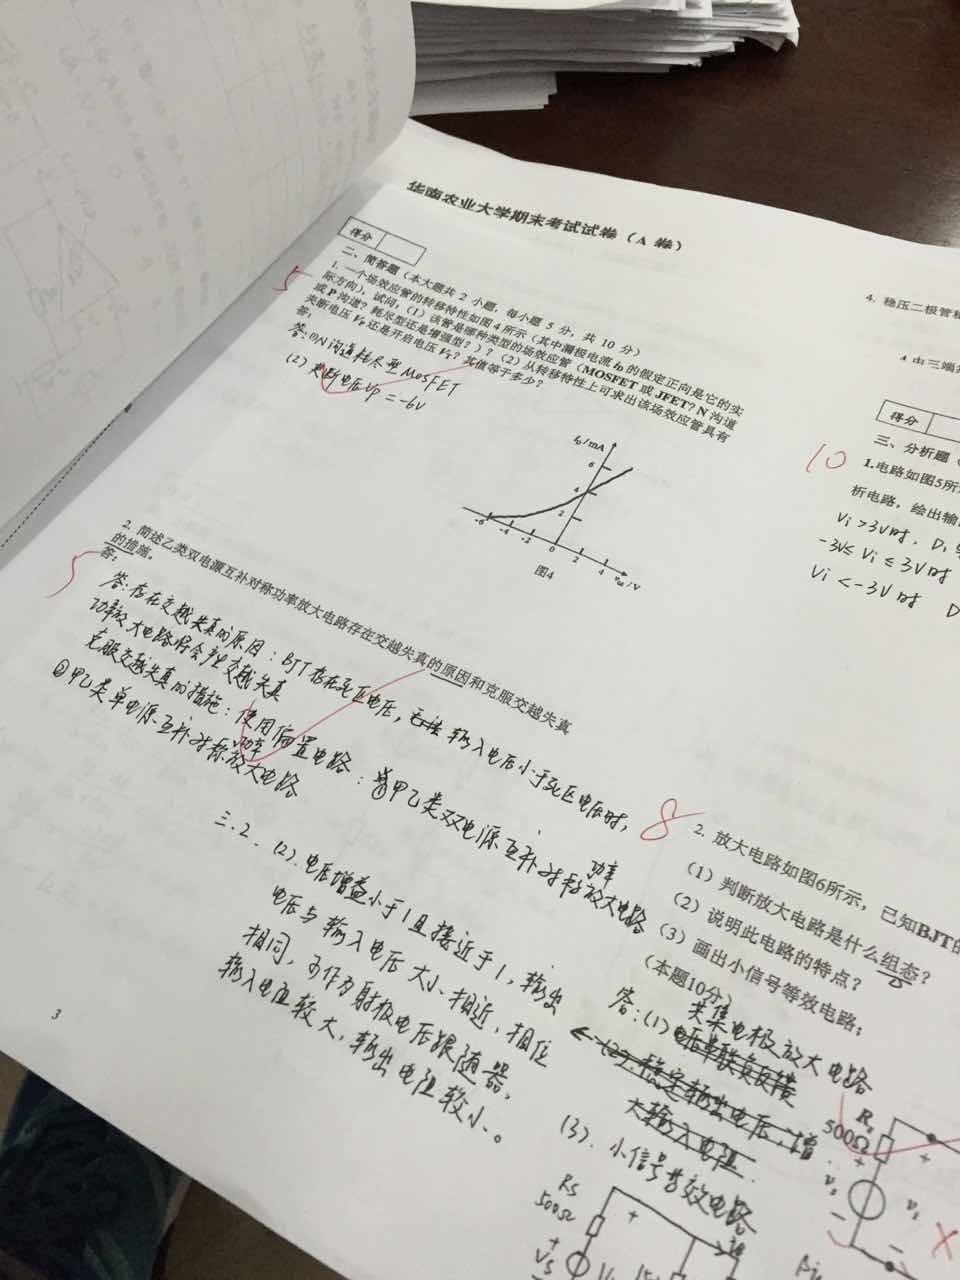 华南农业大学期末考试试卷（A 卷）
得分
二、简答题（本大题共 2 小题，每小题 5 分，共 10 分）
5
1. 一个场效应管的转移特性如图4所示（其中漏极电流 iD 的假定正向是它的实
际方向），试问：（1）该管是哪种类型的场效应管（MOSFET 或 JFET？N 沟道
或 P 沟道？耗尽型还是增强型？）？（2）从转移特性上可求出该场效应管具有
夹断电压 VP 还是开启电压 VT？其值等于多少？
答：
答:(1)N沟道耗尽型MOSFET
(2)夹断电压Vp = -6V
iD/mA
6
4
2
-6 -4 -2 0 2 4 /V
图4
5
2. 简述乙类双电源互补对称功率放大电路存在交越失真的原因和克服交越失真
的措施。
答：
答:存在交越失真的原因：BJT存在死区电压，输入电压小于死区电压时，
功率放大电路将会产生交越失真
克服交越失真的措施：使用偏置电路：①甲乙类双电源互补对称功率放大电路
②甲乙类单电源互补对称功率放大电路
三.2.(2).电压增益小于1且接近于1，输出
电压与输入电压大小相近，相位
相同，可作为射极电压跟随器，
输入电阻较大，输出电阻较小。
3
4. 稳压二极管
由三端
得分
三、分析题
10
1.电路如图5所
析电路，绘出输
Vi >3V时，D
-3V≤ Vi ≤3V时
Vi <-3V时 D
8
2. 放大电路如图6所示，已知BJT的
（1）判断放大电路是什么组态？
（2）说明此电路的特点？
（3）画出小信号等效电路；
（本题10分）
答:(1)共集电极放大电路
电压串联负反馈
(2).稳定输出电压，增
大输入电阻
(3).小信号等效电路
Rs
500Ω
+
Vs
+
Rs
500Ω
+
vs
−
+
−